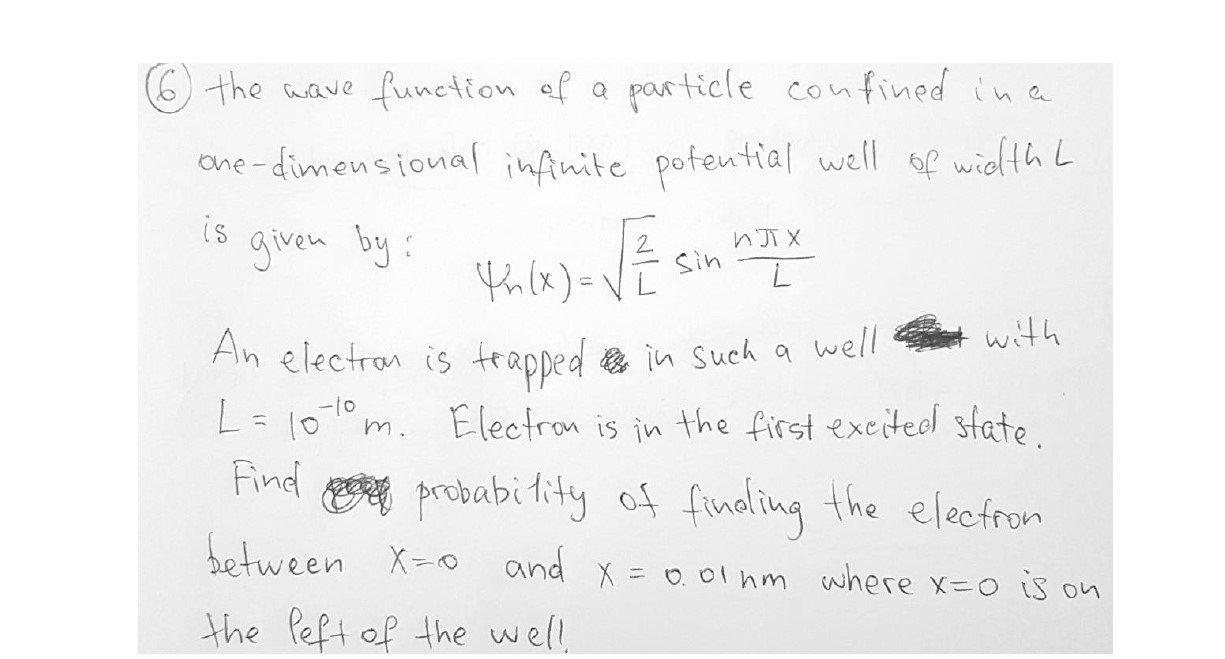 ⑥ the wave function of a particle confined in a
one-dimensional infinite potential well of width L
is given by:
ψn(x) = √(2/L) sin nπx/L
An electron is trapped in such a well with
L = 10^-10 m. Electron is in the first excited state.
Find probability of finding the electron
between x=0 and x = 0.01nm where x=0 is on
the left of the well.